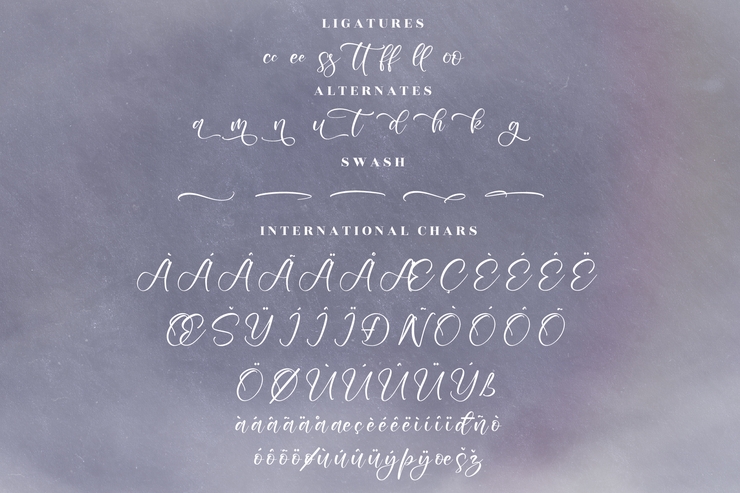 LIGATURES
cc ee ss tt ff ll oo
ALTERNATES
a m n u t d h k g
SWASH
INTERNATIONAL CHARS
À Á Â Ã Ä Å Æ Ç È É Ê Ë
Œ Š Ÿ Í Î Ï Ð Ñ Ò Ó Ô Õ
Ö Ø Ù Ú Û Ü Ý ß
à á â ã ä å æ ç è é ê ë ì í î ï đ ñ ò
ó ô õ ö ø ù ú û ü ý þ ÿ œ š ž